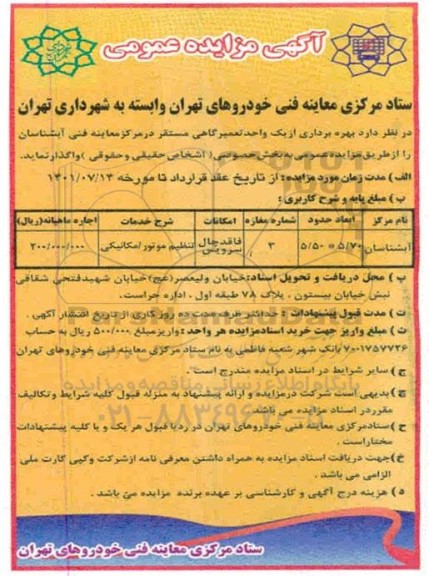 آگهی مزایده عمومی
ستاد مرکزی معاینه فنی خودروهای تهران وابسته به شهرداری تهران
در نظر دارد بهره برداری از یک واحد تعمیرگاهی مستقر در مرکز معاینه فنی آبشناسان
را از طریق مزایده عمومی به بخش خصوصی ( اشخاص حقیقی و حقوقی ) واگذار نماید.
الف ) مدت زمان مورد مزایده : از تاریخ عقد قرارداد تا مورخه ۱۴۰۱/۰۷/۱۳
ب ) مبلغ پایه و شرح کاربری :
نام مرکز ابعاد حدود شماره مغازه امکانات شرح خدمات اجاره ماهیانه(ریال)
آبشناسان ۵/۷۰ * ۵/۵۰ ۳ فاقد چال سرویس تنظیم موتور/مکانیکی ۲۰۰/۰۰۰/۰۰۰
پ ) محل دریافت و تحویل اسناد: خیابان ولیعصر(عج) خیابان شهید فتحی شقاقی
نبش خیابان بیستون ، پلاک ۷۸ طبقه اول ، اداره حراست.
ت ) مدت قبول پیشنهادات : حداکثر ظرف مدت ده روز کاری از تاریخ انتشار آگهی .
ث ) مبلغ واریز جهت خرید اسناد مزایده هر واحد : واریز مبلغ ۵۰۰/۰۰۰ ریال به حساب
۷۰۰۱۷۵۷۷۳۶ بانک شهر شعبه فاطمی به نام ستاد مرکزی معاینه فنی خودروهای تهران
ج ) سایر شرایط در اسناد مزایده مندرج است.
چ ) بدیهی است شرکت در مزایده و ارائه پیشنهاد به منزله قبول کلیه شرایط و تکالیف
مقرر در اسناد مزایده می باشد.
ح ) ستاد مرکزی معاینه فنی خودروهای تهران در رد یا قبول هر یک و یا کلیه پیشنهادات
مختار است .
خ) جهت دریافت اسناد مزایده به همراه داشتن معرفی نامه از شرکت و کپی کارت ملی
الزامی می باشد .
د ) هزینه درج آگهی و کارشناسی بر عهده برنده مزایده می باشد .
پایگاه اطلاع رسانی مناقصه و مزایده
ستاد مرکزی معاینه فنی خودروهای تهران